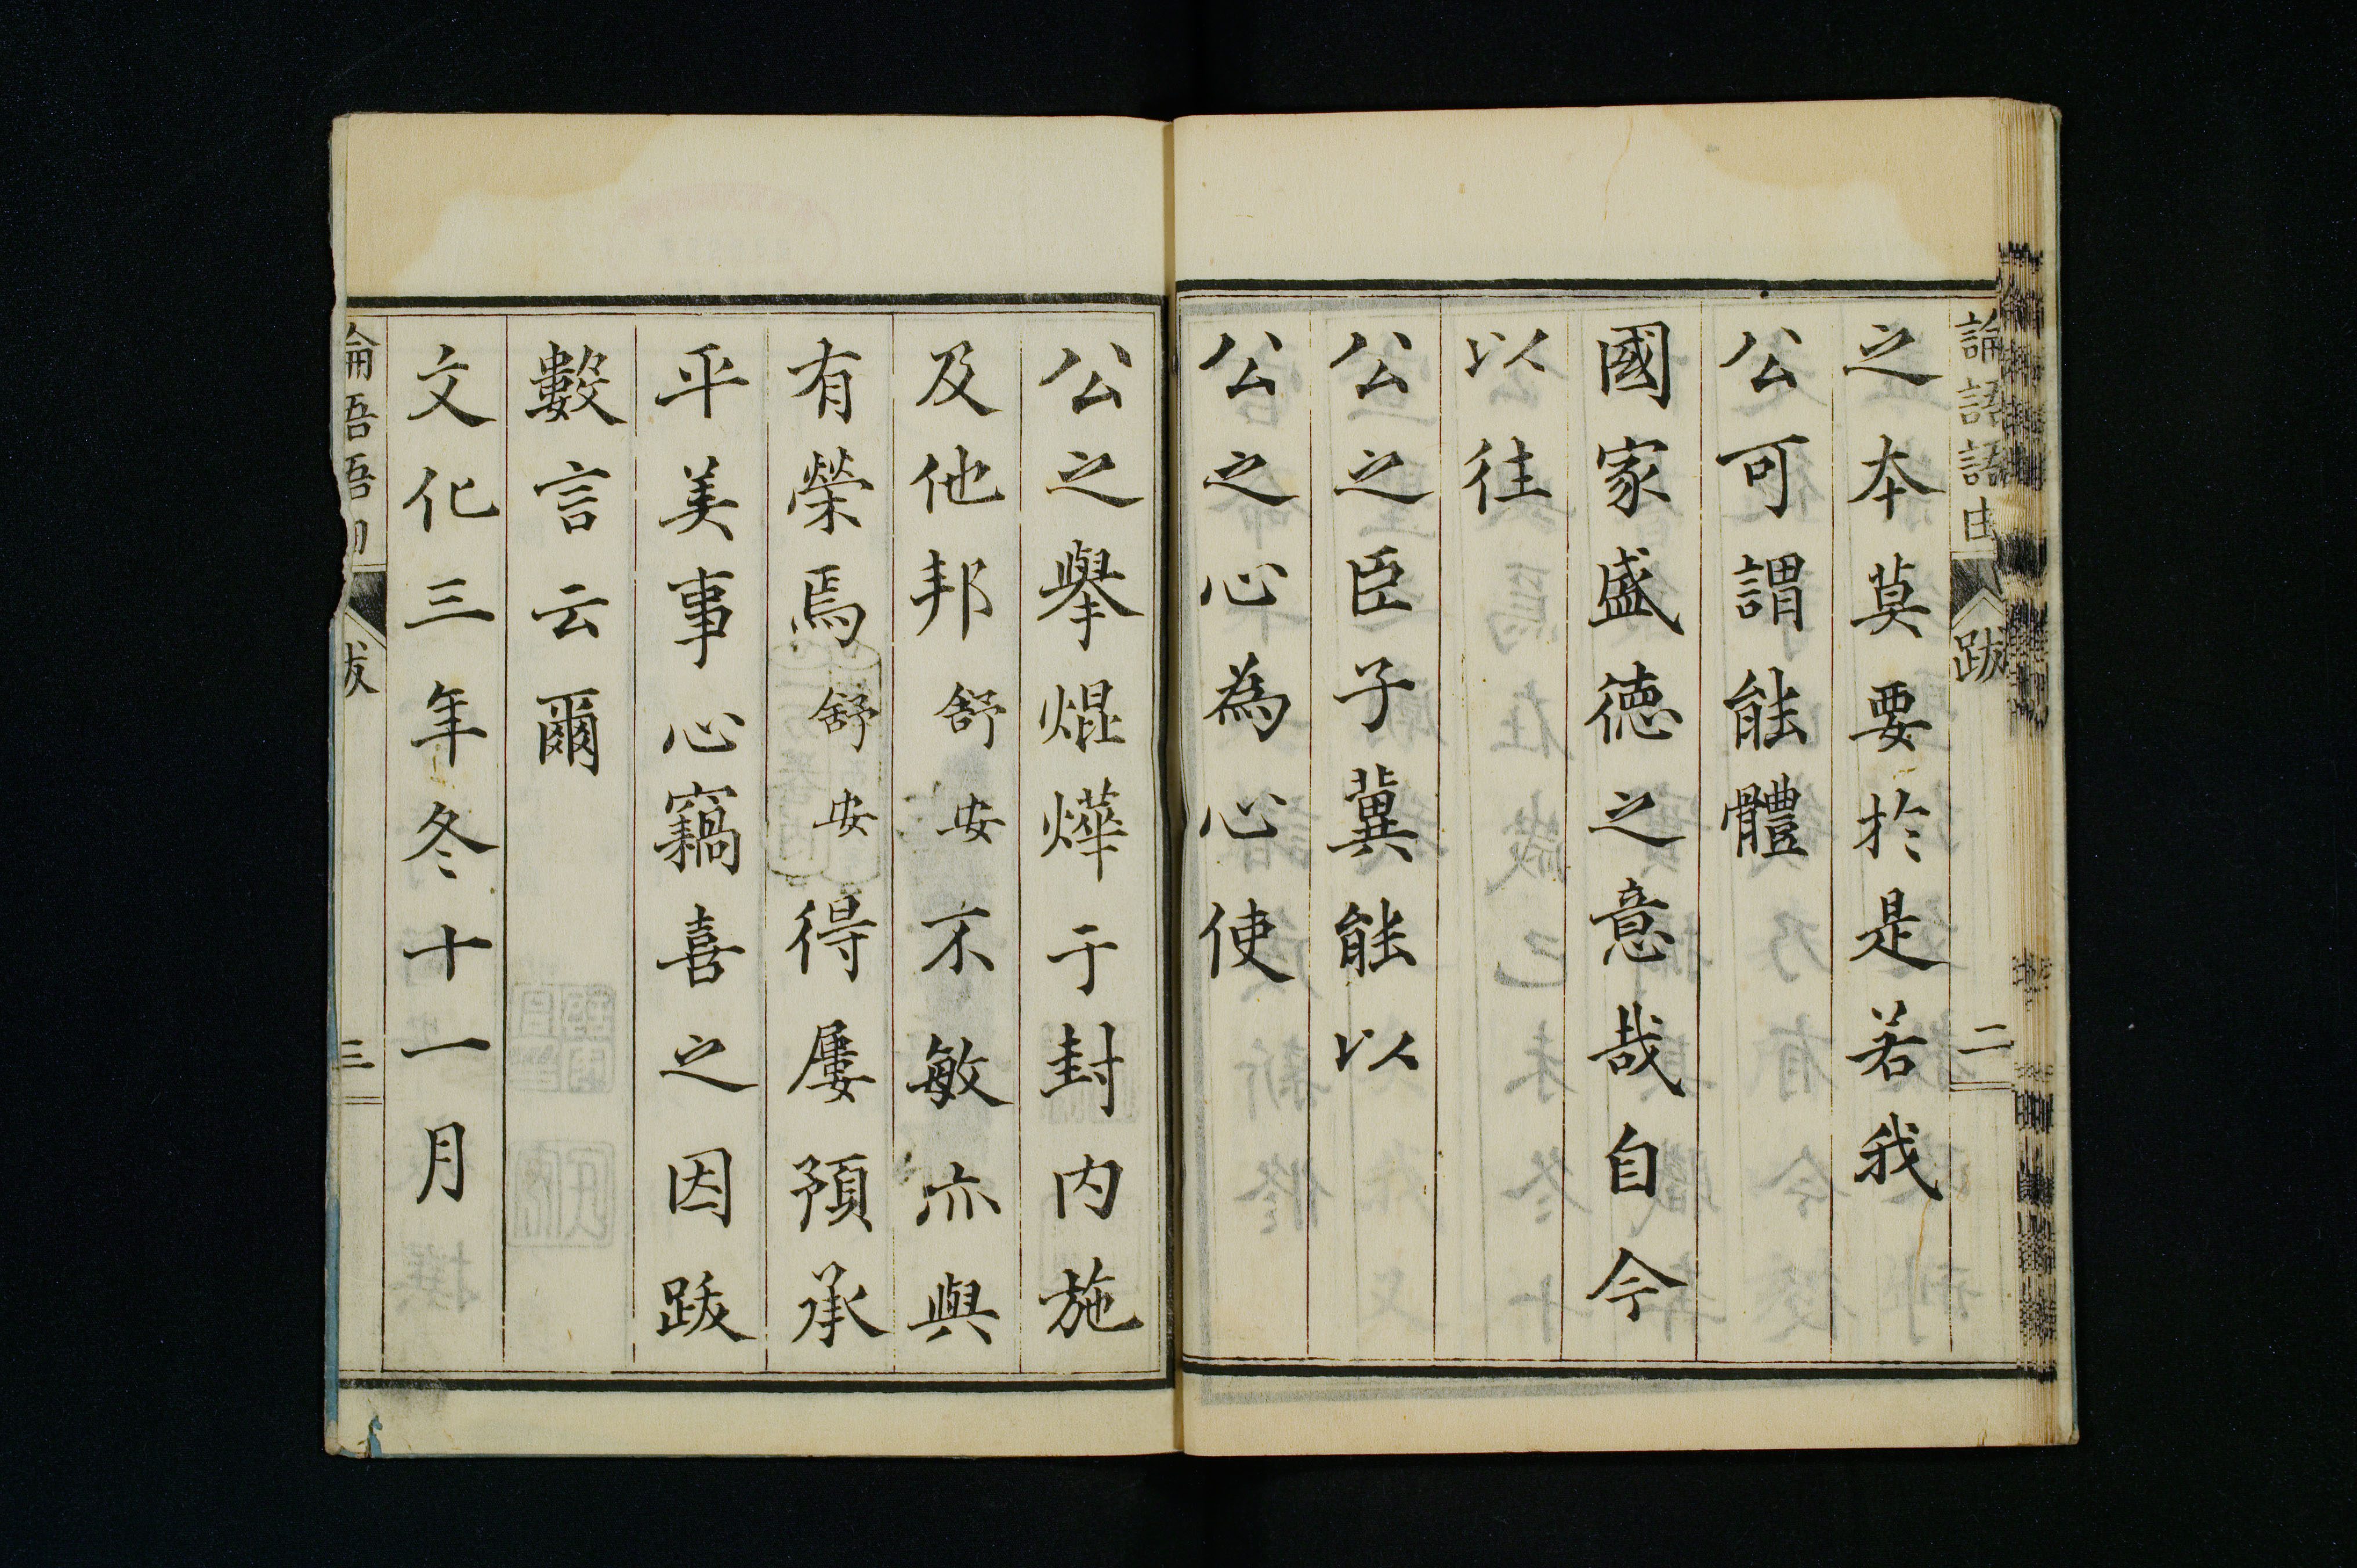 論語語由
跋
二
之本莫要於是若我
公可謂能體
國家盛徳之意哉自今
以往
公之臣子冀能以
公之心為心使
公之舉焜燁于封内施
及他邦舒安不敏亦與
有榮焉舒安得屢預承
平美事心竊喜之因跋
數言云爾
文化三年冬十一月
三